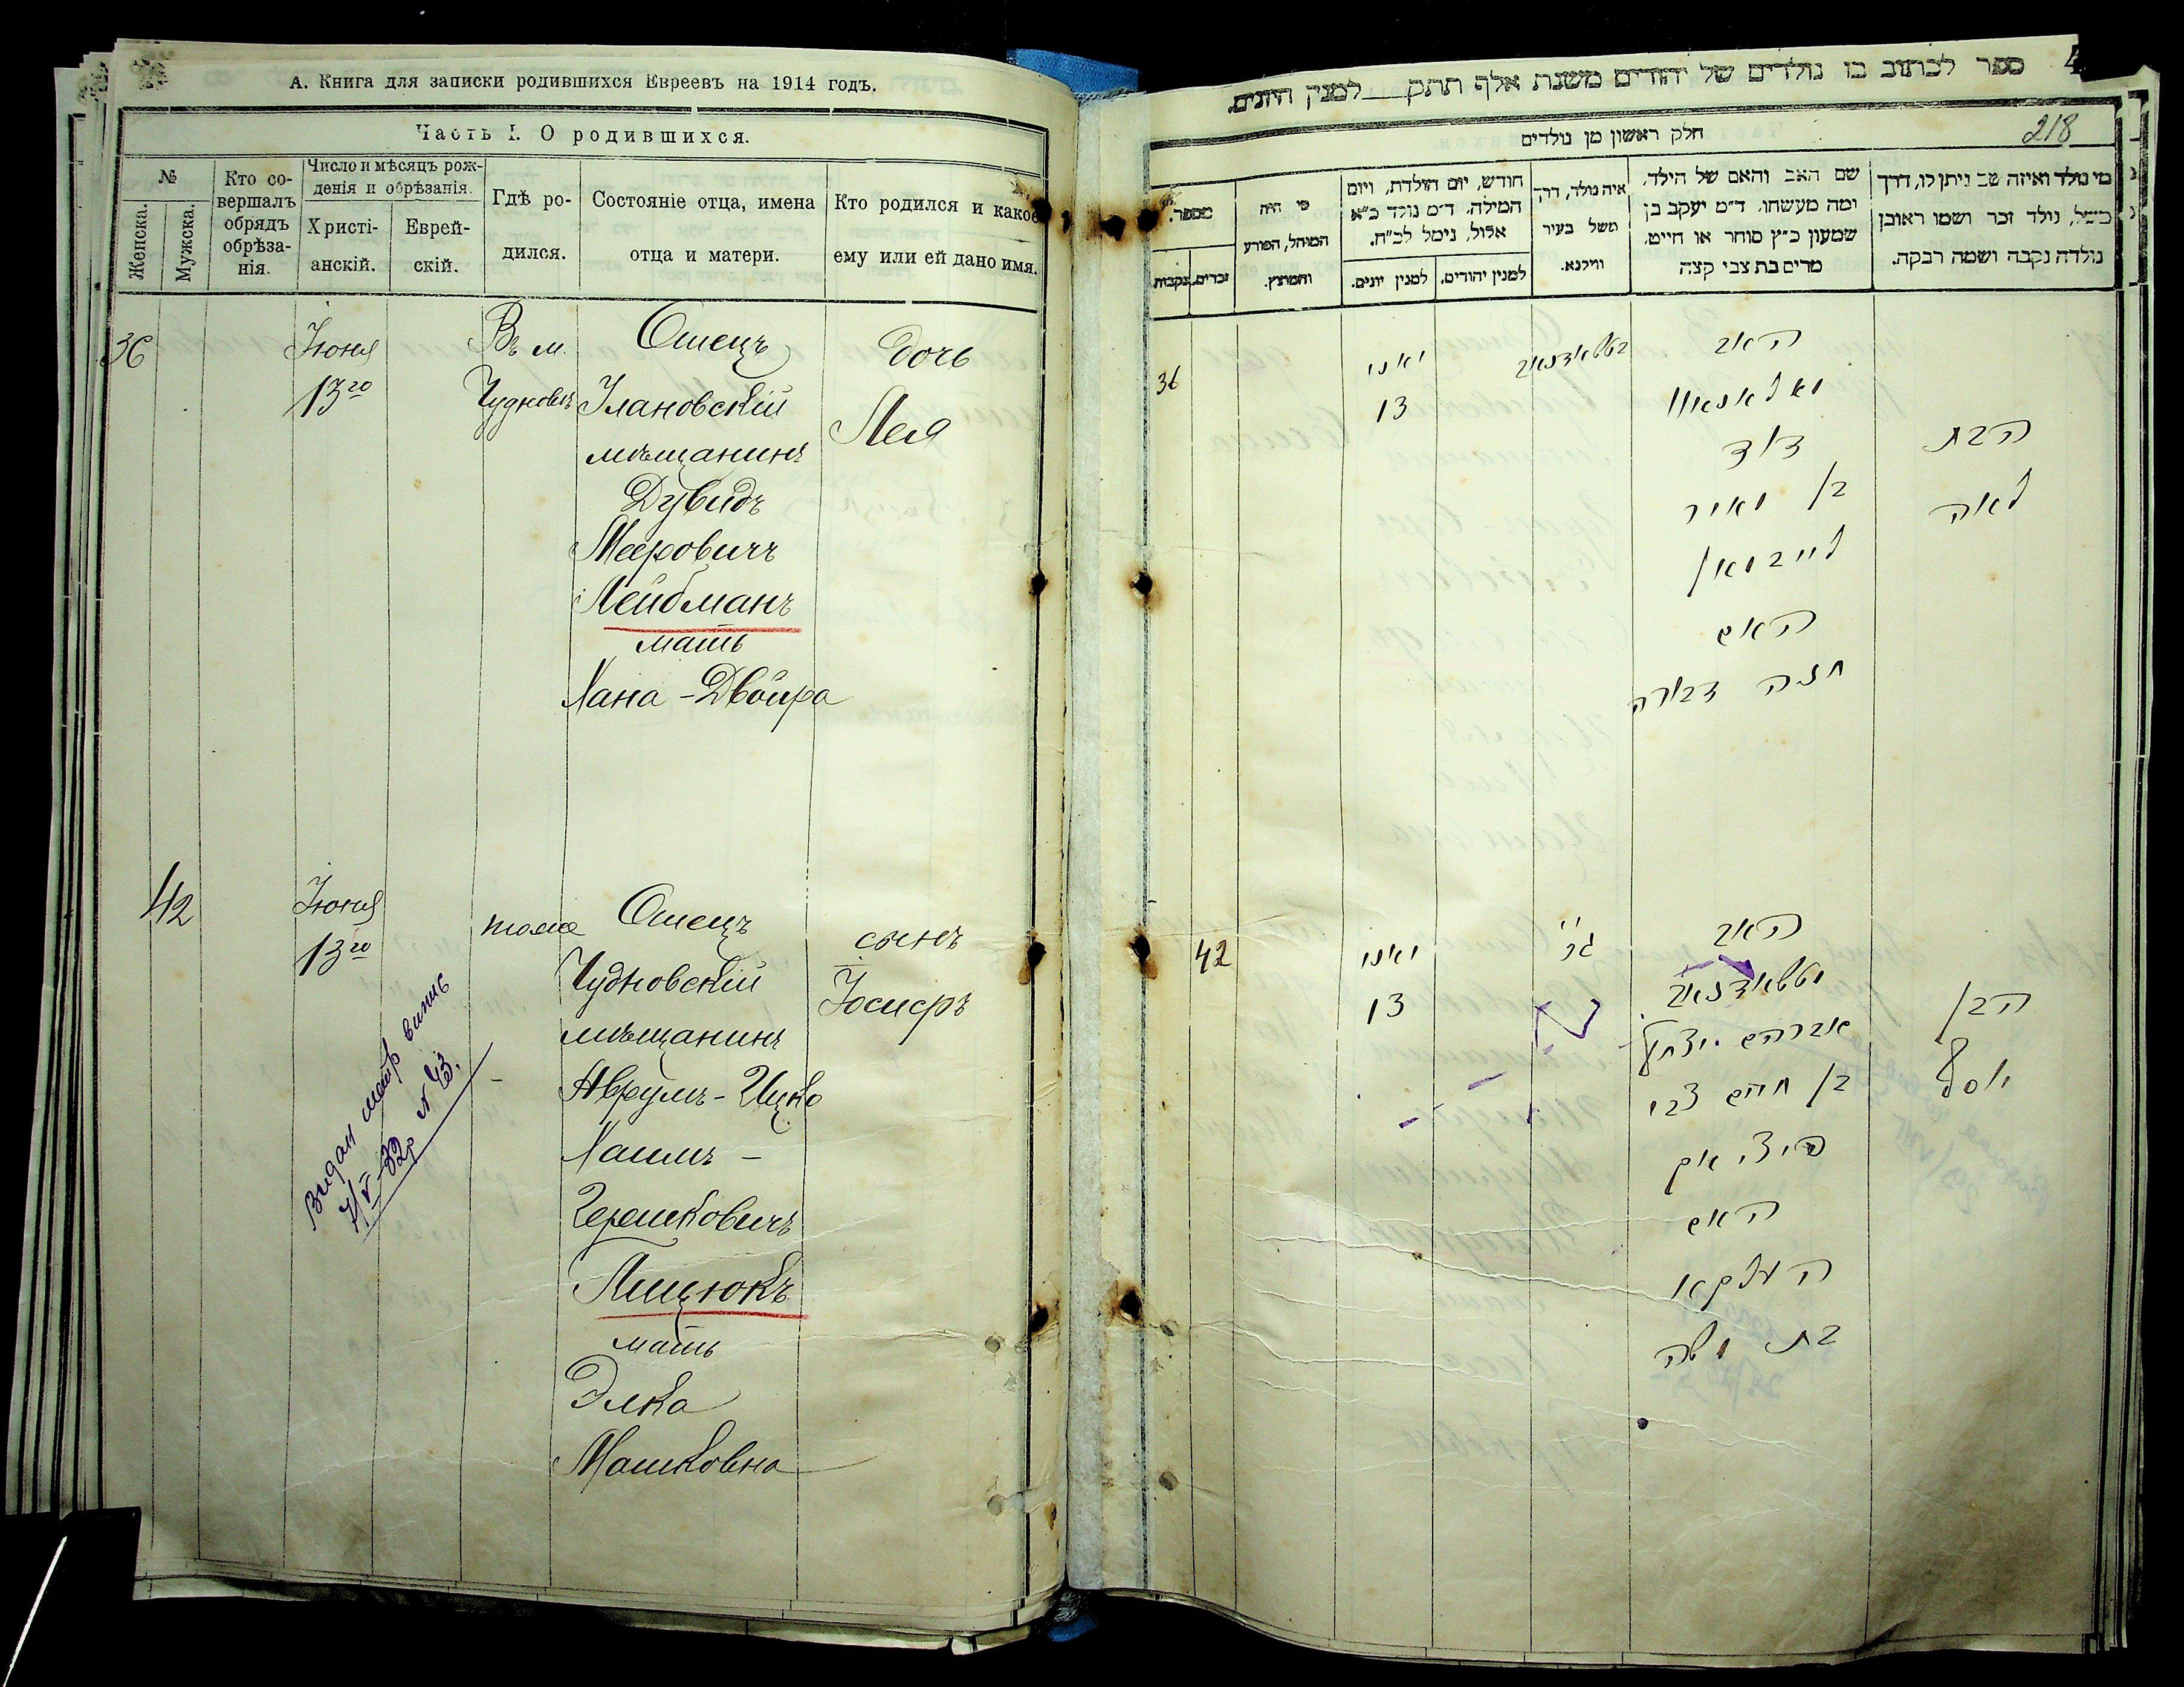 А. Книга для записки родившихся Евреевъ на 1914 годъ.
Часть I. О родившихся.
№
Женска.
Мужска.
Кто со-
вершалъ
обрядъ
обрѣза-
нія.
Число и мѣсяцъ рож-
денія и обрѣзанія.
Христі-
анскій.
Еврей-
скій.
Гдѣ ро-
дился.
Состояніе отца, имена
отца и матери.
Кто родился и какое
ему или ей дано имя.
36
Іюня
13го
Въ м.
Чудновъ
Отецъ
Улановскій
мѣщанинъ
Дувидъ
Мееровичъ
Лейбманъ
мать
Хана-Двойра
дочь
Лея
42
Іюня
13го
тоже
Отецъ
Чудновскій
мѣщанинъ
Аврумъ-Ицко
Хаимъ-
Гершковичъ
Лицюкъ
мать
Элка
Мошковна
сынъ
Іосифъ
4/V-32р N 43.
ספר לכתוב בו נולדים של יהודים משנת אלף תתק למנין היונים.
חלק ראשון מן נולדים
218
מספר.
נקבות
זכרים.
מי היה
המוהל, הפורע
והמוצץ.
חודש, יום הולדת, ויום
המילה. ד״מ נולד כ״א
אלול, נימל לכ״ח.
למנין יונים.
למנין יהודים.
איה נולד, דרך
משל בעיר
ווילנא.
שם האב והאם של הילד,
ומה מעשהו. ד״מ יעקב בן
שמעון כ״ץ סוחר או חייט.
מרים בת צבי קצה
מי נולד ואיזה שם ניתן לו, דרך
משל, נולד זכר ושמו ראובן
נולדה נקבה ושמה רבקה.
36
יאני
13
האב
דוד
בן מאיר
לייבמאן
האם
חנה דבורה
הבת
לאה
42
יאני
13
האב
אברהם יצחק
בן חיים צבי
האם
בת משה
הבן
יוסף